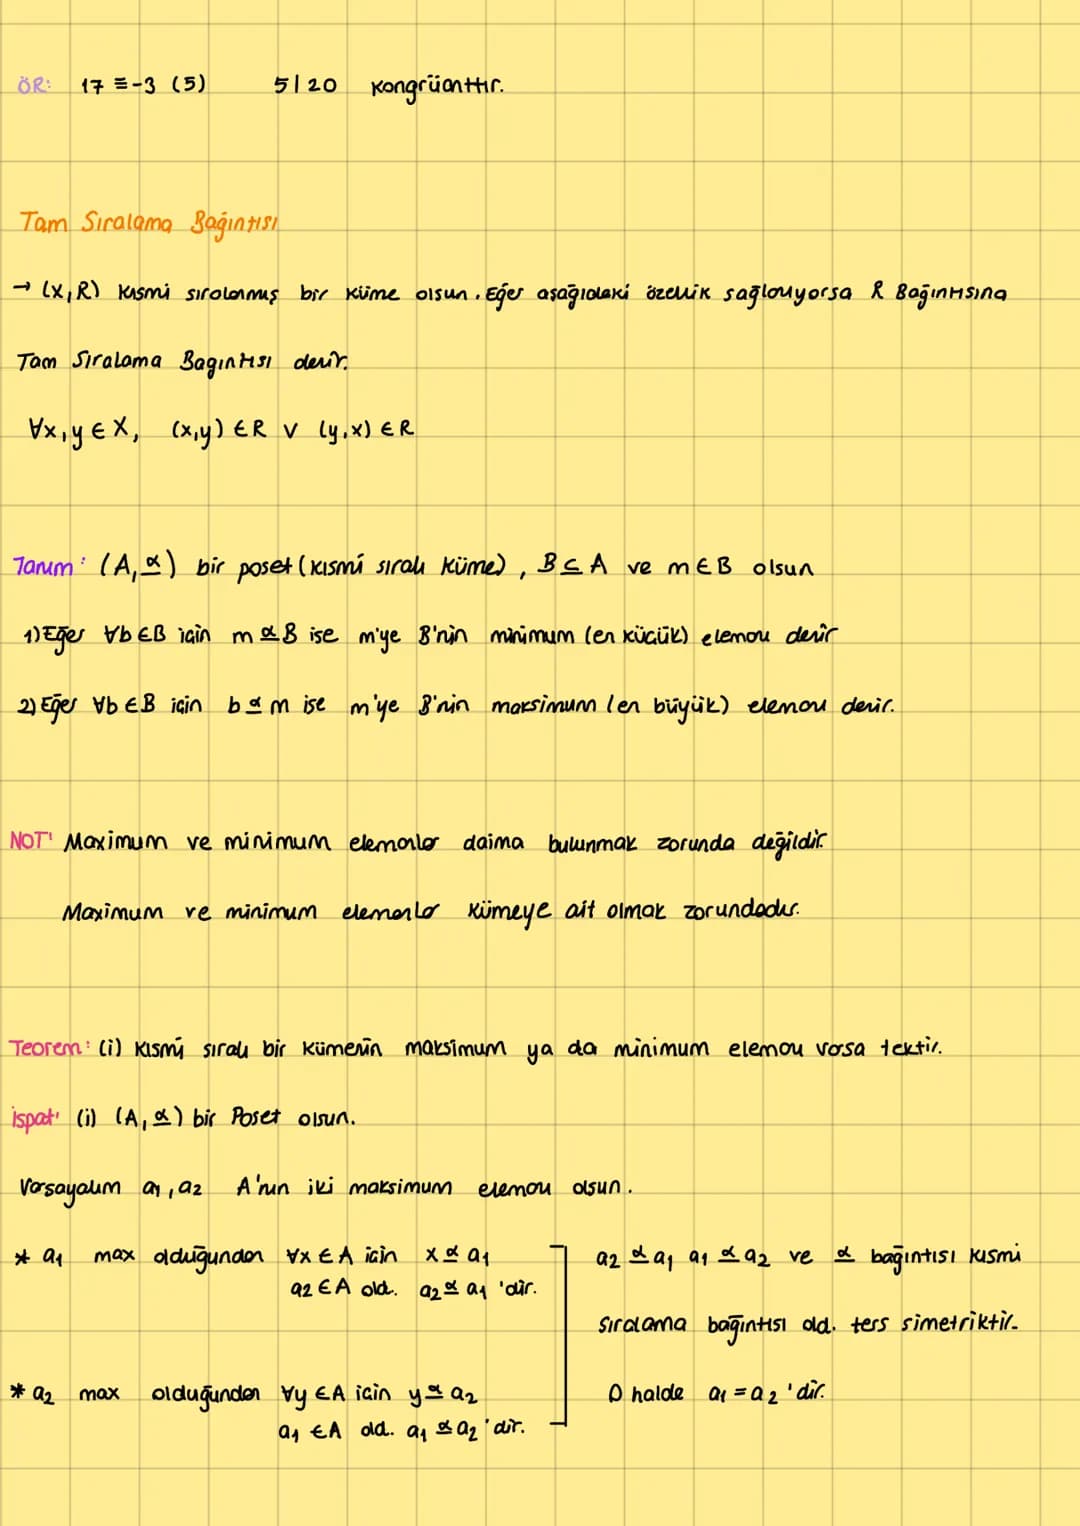 ÖR: 17 ≡ -3 (5) 5|20 kongrüanttır.
Tam Sıralama Bağıntısı
→ (X,R) kısmi sıralanmış bir küme olsun. Eğer aşağıdaki özellik sağlanıyorsa R Bağıntısına
Tam Sıralama Bagıntısı denir.
∀x,y ∈ X, (x,y) ∈ R ∨ (y,x) ∈ R
Tanım: (A,⪯) bir poset (kısmi sıralı küme), B ⊆ A ve m ∈ B olsun
1) Eğer ∀b ∈ B için m ⪯ B ise m'ye B'nin minimum (en küçük) elemanı denir
2) Eğer ∀b ∈ B için b ⪯ m ise m'ye B'nin maksimum (en büyük) elemanı denir.
NOT: Maximum ve minimum elemanlar daima bulunmak zorunda değildir.
Maximum ve minimum elemanlar kümeye ait olmak zorundadır.
Teorem: (i) Kısmi sıralı bir kümenin maksimum ya da minimum elemanı varsa tektir.
ispat: (i) (A,⪯) bir Poset olsun.
Varsayalım a₁, a₂ A'nın iki maksimum elemanı olsun.
* a₁ max olduğundan ∀x ∈ A için x ⪯ a₁
a₂ ∈ A old. a₂ ⪯ a₁ 'dir.
* a₂ max olduğundan ∀y ∈ A için y ⪯ a₂
a₁ ∈ A old. a₁ ⪯ a₂ 'dir.
a₂ ⪯ a₁ a₁ ⪯ a₂ ve ⪯ bağıntısı kısmi
sıralama bağıntısı old. ters simetriktir.
O halde a₁ = a₂ 'dir.